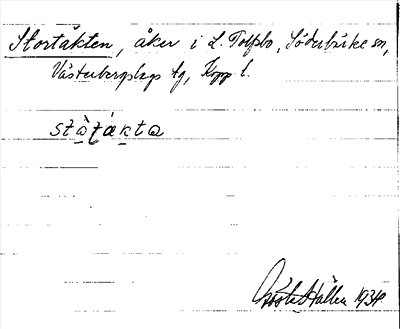 Stortäkten, åker i L. Tolfsbo, Söderbärke sn,
Västerbergslags tg, Kopp l.
Gösta Hallén 1934.